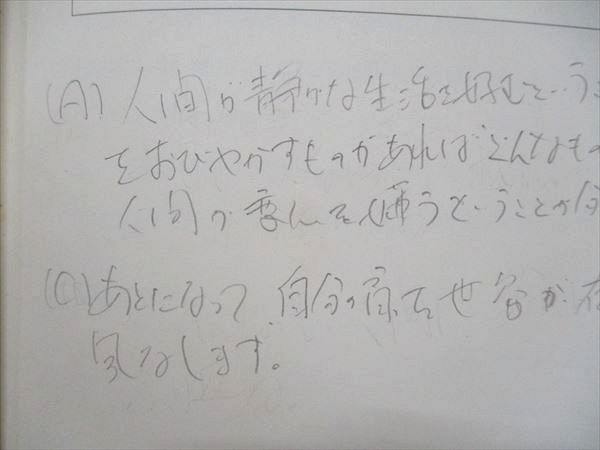 (A) 人間が静かな生活を好むという
をおびやかすものがあればどんなもの
人間が を嫌うということが
(C) あとになって、自分の 世 が
気がします。